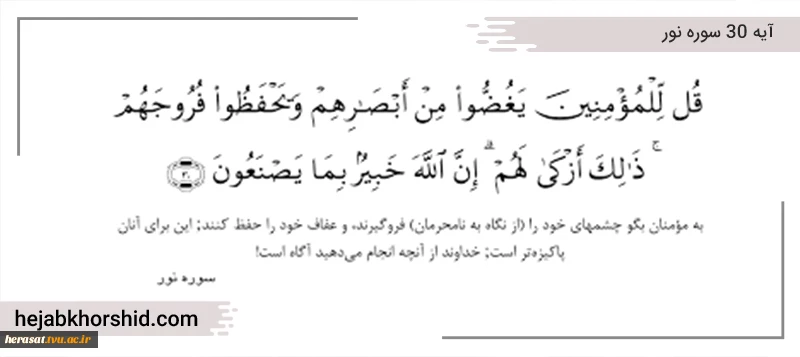 آیه 30 سوره نور
قُل لِّلْمُؤْمِنِينَ يَغُضُّوا۟ مِنْ أَبْصَـٰرِهِمْ وَيَحْفَظُوا۟ فُرُوجَهُمْ
ۚ ذَٰلِكَ أَزْكَىٰ لَهُمْ ۗ إِنَّ ٱللَّهَ خَبِيرٌۢ بِمَا يَصْنَعُونَ ٣٠
به مؤمنان بگو چشمهای خود را (از نگاه به نامحرمان) فروگیرند، و عفاف خود را حفظ کنند؛ این برای آنان
پاکیزه‌تر است؛ خداوند از آنچه انجام می‌دهید آگاه است!
سوره نور
hejabkhorshid.com
herasat.tvu.ac.ir